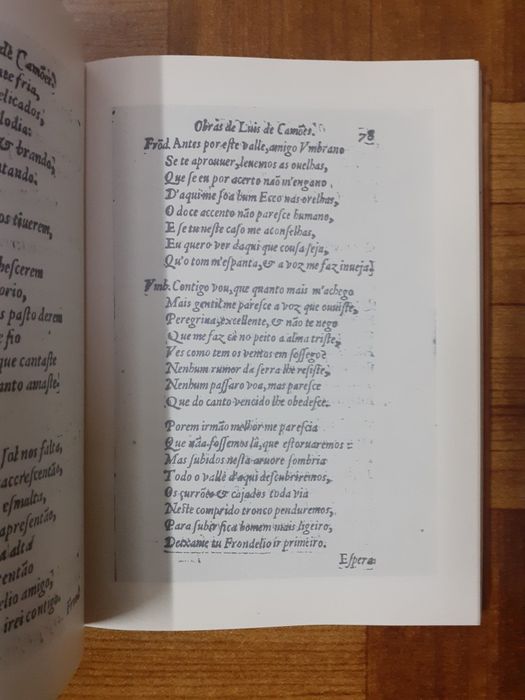 de Camões.
te fria,
elicados,
lodia:
& brando,
ntando.
os tiuerem,
hescerem
orio,
s pasto derem
e fio
que cantaste
anto amaste.
Sol nos falta,
accrescentão,
esmalta,
apresentão,
a alta
então
elio amigo,
irei contigo.
Frond
Obras de Luis de Camões.
78
Frõd. Antes por este valle, amigo Vmbrano
Se te aprouuer, leuemos as ouelhas,
Que se eu por acerto não m'engano
D'aqui me soa hum Ecco nas orelhas,
O doce accento não paresce humano,
E se tu neste caso me aconselhas,
Eu quero ver daqui que cousa seja,
Qu'o tom m'espanta, & a voz me faz inueja.
Vmb. Contigo vou, que quanto mais m'achego
Mais gentil me paresce a voz que ouuiste,
Peregrina, excellente, & não te nego
Que me faz cà no peito a alma triste,
Ves como tem os ventos em sossego?
Nenhum rumor da serra lhe resiste,
Nenhum passaro voa, mas paresce
Que do canto vencido lhe obedesce.
Porem irmão melhor me parescia
Que não fossemos lâ, que estoruaremos:
Mas subidos nesta aruore sombria
Todo o valle d'aqui descubriremos,
Os currões & cajados toda via
Neste comprido tronco penduremos,
Para subir fica homem mais ligeiro,
Deixame tu Frondelio ir primeiro.
Espera